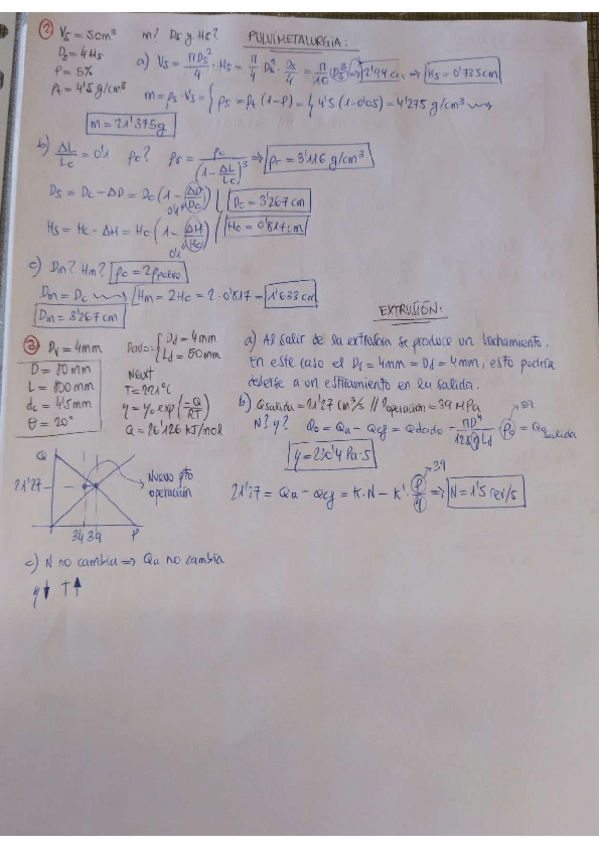 ② Vs = 5cm³ m? Ds y Hs? PULVIMETALURGIA:
Ds = 4Hs
P = 5%
ρt = 4'5 g/cm³
a) Vs = πDs²/4 · Hs = π/4 Ds² · Ds/4 = π/16 (Ds³) ⇒ 2'94 cm ⇒ Hs = 0'735cm
m = ρs · Vs = { ρs = ρt (1-P) = { 4'5 (1-0'05) = 4'275 g/cm³
m = 21'375g
b) ΔL/Lc = 0'1 ρc? ρs = ρc/(1 - ΔL/Lc)³ ⇒ ρc = 3'116 g/cm³
Ds = Dc - ΔD = Dc (1 - ΔD/Dc) Dc = 3'267 cm
0'1
Hs = Hc - ΔH = Hc (1 - ΔH/Hc) Hc = 0'817cm
0'1
c) Dm? Hm? ρc = 2ρpolvo
Dm = Dc Hm = 2Hc = 2 · 0'817 = 1'633 cm
Dm = 3'267 cm
EXTRUSIÓN:
③ Dr = 4mm Dado: { Dd = 4mm
Ld = 50mm
D = 80mm
L = 800mm
dc = 4'5mm
θ = 20°
Newt
T = 221°C
η = η₀ exp(-Q/RT)
Q = 26'126 KJ/mol
a) Al salir de la extrusora se produce un hinchamiento.
En este caso el Dr = 4mm = Dd = 4mm, esto podría
deberse a un estiramiento en la salida.
b) Qsalida = 21'27 cm³/s // Poperación = 39 MPa
N? η? Qo = Qa - Qcf = Qdado = πD⁴/128ηLd Po = Qsalida
39
η = 230'4 Pa·s
21'27 = Qa - Qcf = K·N - K'·P/η ⇒ N = 1'5 rev/s
39
Q
21'27
Nuevo pto
operación
34 39 P
c) N no cambia ⇒ Qa no cambia
η↓ T↑